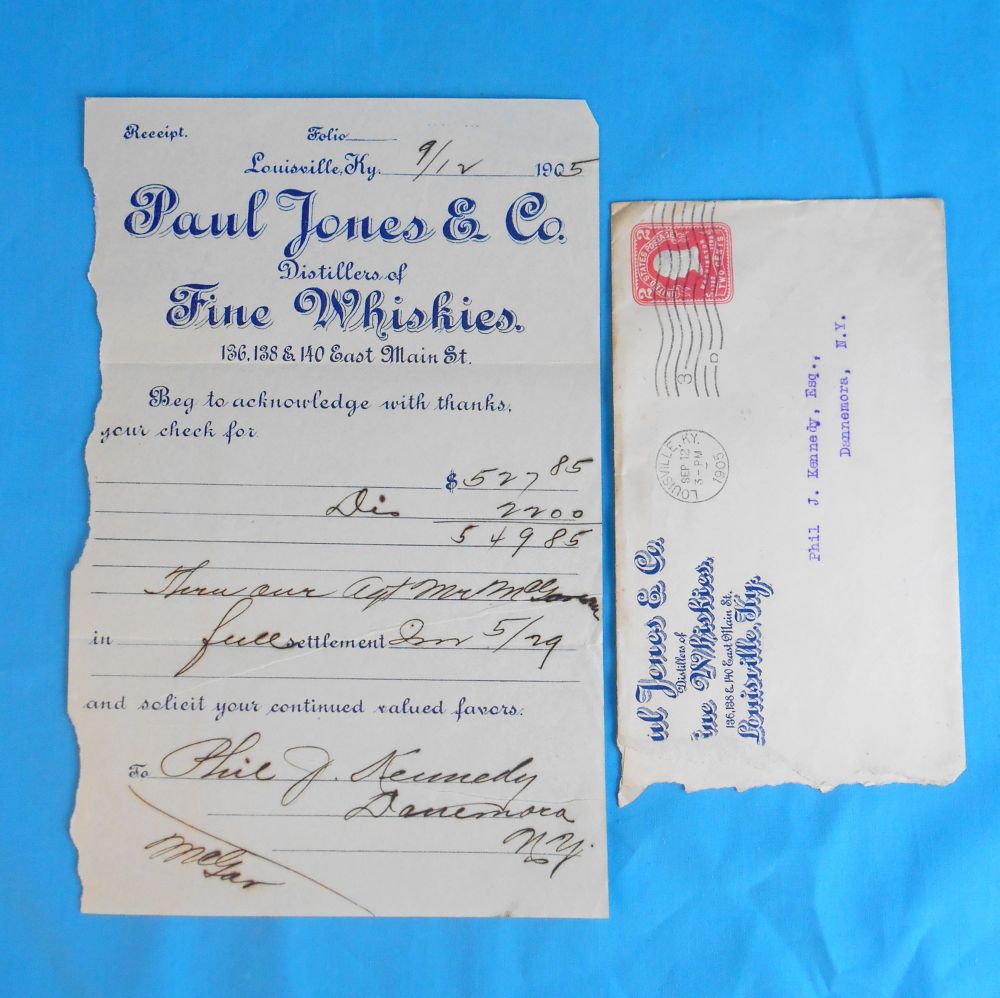 Receipt. Folio
Louisville, Ky. 9/12 1905
Paul Jones & Co.
Distillers of
Fine Whiskies.
136, 138 & 140 East Main St.
Beg to acknowledge with thanks,
your check for
$ 527 85
Dis 22 00
549 85
Thru our Agt Mr
in full settlement Inv 5/29
and solicit your continued valued favors.
To Phil J. Kennedy
Danemora
N.Y.
McGov
2 UNITED STATES POSTAGE 2
WASHINGTON
TWO CENTS
3 D
LOUISVILLE, KY.
SEP 12
3 - PM
1905
Phil J. Kennedy, Esq.,
Dannemora, N.Y.
ul Jones & Co.
Distillers of
ine Whiskies,
136, 138 & 140 East Main St.
Louisville, Ky.